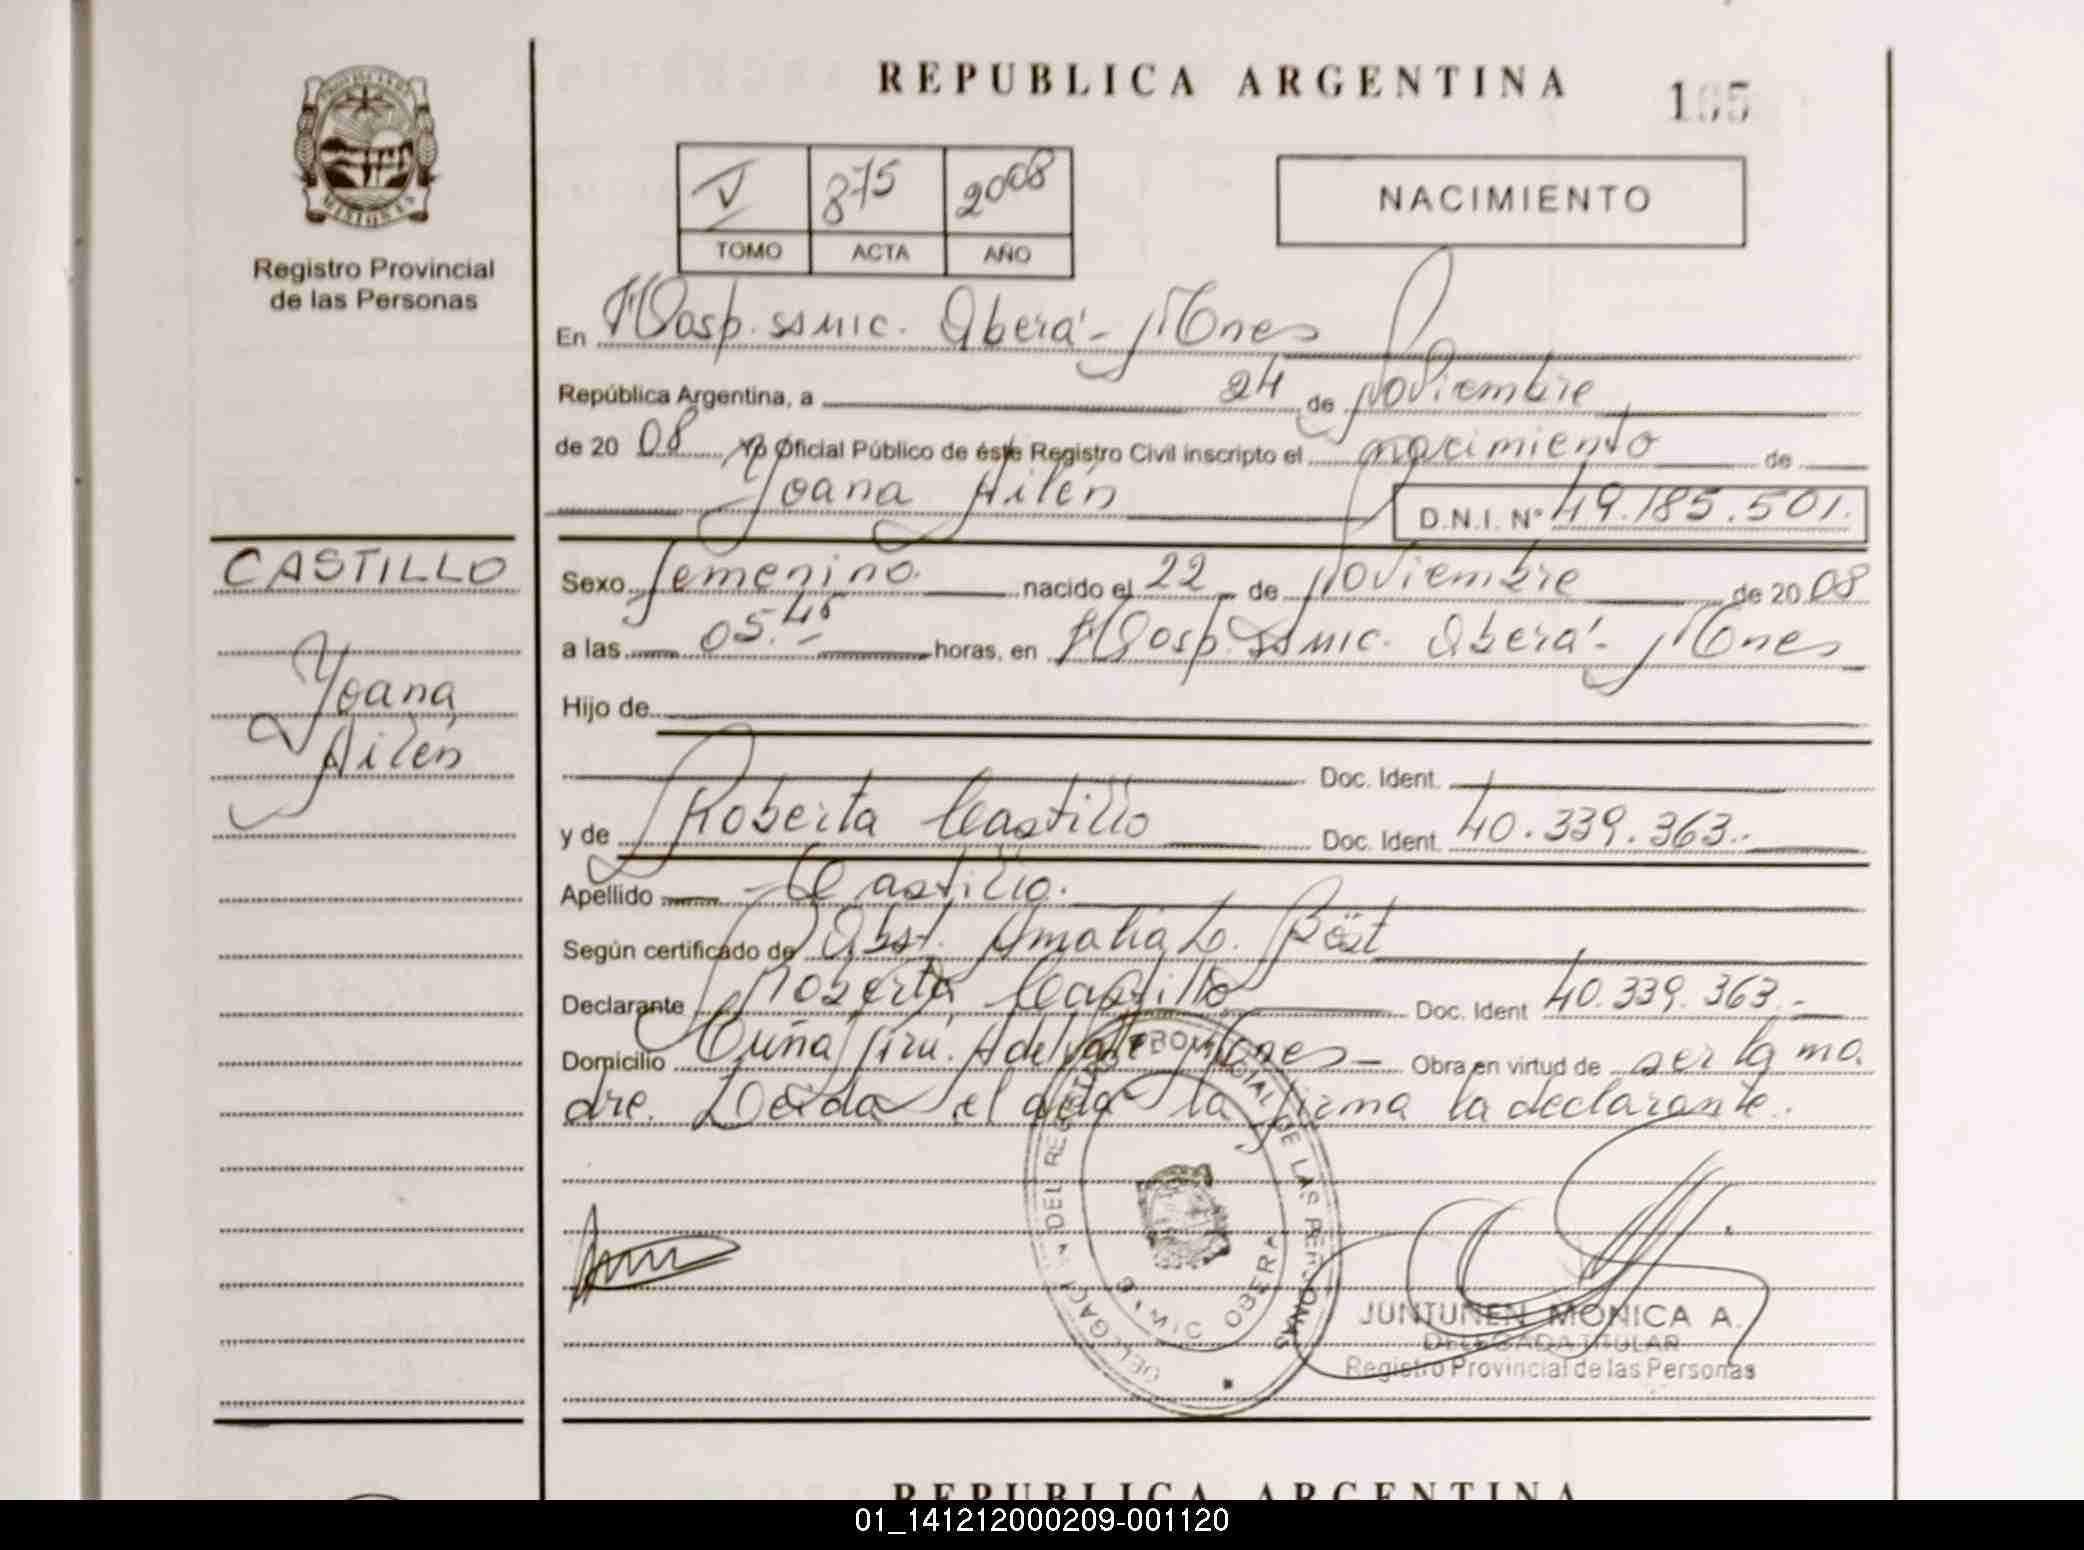 REPUBLICA ARGENTINA
165
PROVINCIA DE MISIONES
Registro Provincial
de las Personas
V 875 2008
TOMO ACTA AÑO
NACIMIENTO
En Hosp. SAMIC. Oberá - Mnes
República Argentina, a 24 de Noviembre
de 20 08 Yo Oficial Público de éste Registro Civil inscripto el nacimiento de
Yoana Ailén D.N.I. Nº 49.185.501.
CASTILLO
Yoana
Ailén
Sexo femenino. nacido el 22 de Noviembre de 20 08
a las 05.45 horas, en Hosp. SAMIC. Oberá - Mnes
Hijo de
Doc. Ident.
y de Roberta Castillo Doc. Ident. 40.339.363.-
Apellido - Castillo.
Según certificado de Obst. Amalia L. Böst
Declarante Roberta Castillo Doc. Ident 40.339.363.-
Domicilio Cuña Pirú. A del Valle Mnes - Obra en virtud de ser la ma
dre. Leída el acta la firma la declarante.
DELEGACION DEL REGISTRO PROVINCIAL DE LAS PERSONAS
SAMIC OBERA
JUNTUNEN MONICA A.
DELEGADA TITULAR
Registro Provincial de las Personas
REPUBLICA ARGENTINA
01_141212000209-001120